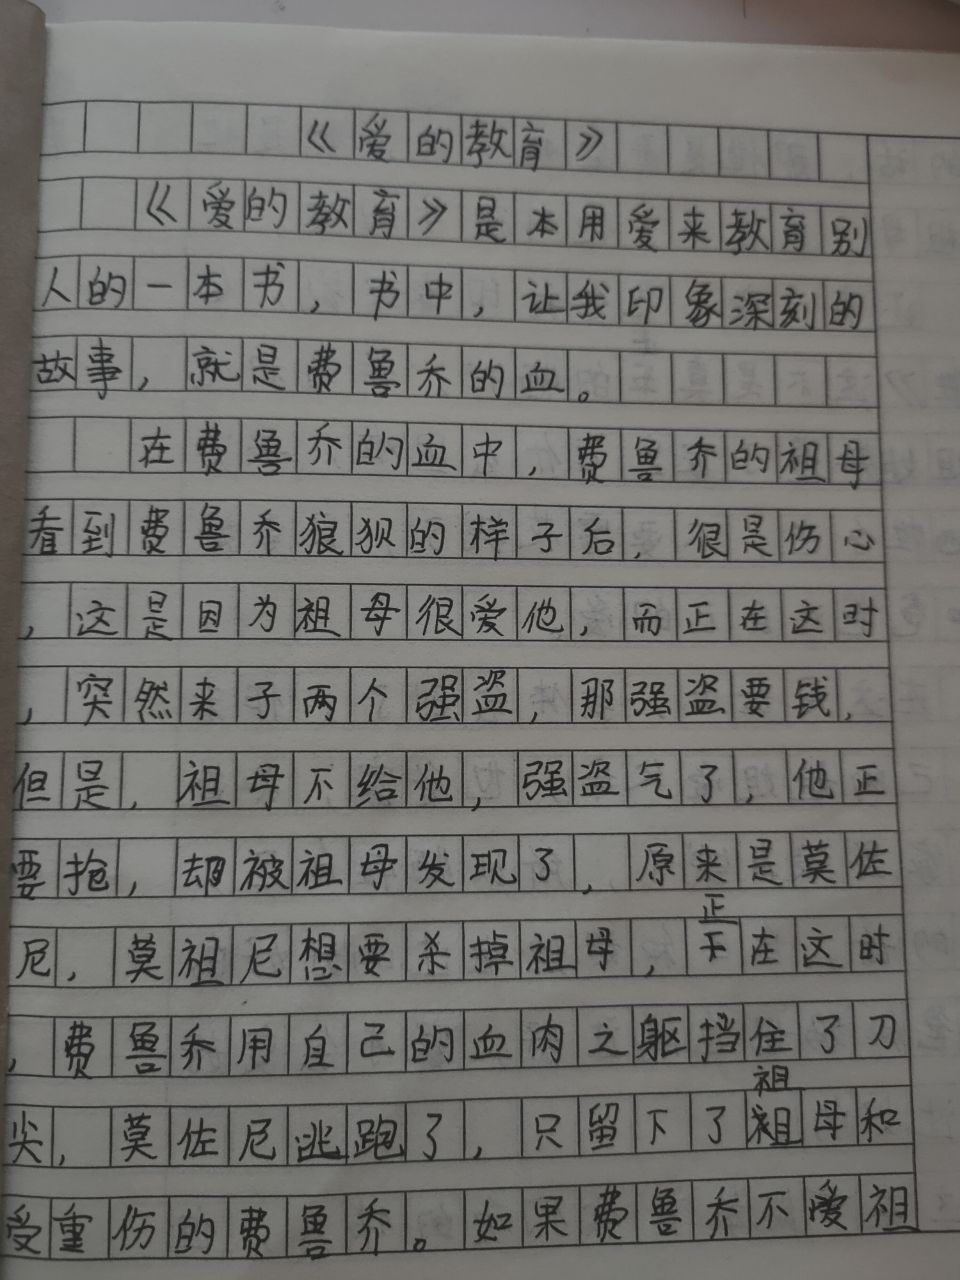 《爱的教育》
《爱的教育》是本用爱来教育别
人的一本书，书中，让我印象深刻的
故事，就是费鲁乔的血。
在费鲁乔的血中，费鲁乔的祖母
看到费鲁乔狼狈的样子后，很是伤心
，这是因为祖母很爱他，而正在这时
，突然来子两个强盗，那强盗要钱，
但是，祖母不给他，强盗气了，他正
要抢，却被祖母发现了，原来是莫佐
尼，莫祖尼想要杀掉祖母，正在这时
，费鲁乔用自己的血肉之躯挡住了刀
尖，莫佐尼逃跑了，只留下了祖母和
受重伤的费鲁乔。如果费鲁乔不爱祖